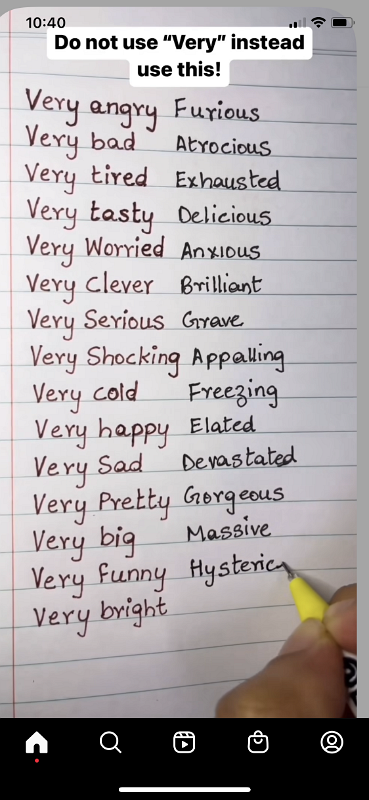 10:40
Do not use “Very” instead
use this!
Very angry Furious
Very bad Atrocious
Very tired Exhausted
Very tasty Delicious
Very Worried Anxious
Very Clever Brilliant
Very Serious Grave
Very Shocking Appalling
Very cold Freezing
Very happy Elated
Very Sad Devastated
Very Pretty Gorgeous
Very big Massive
Very funny Hysteric
Very bright